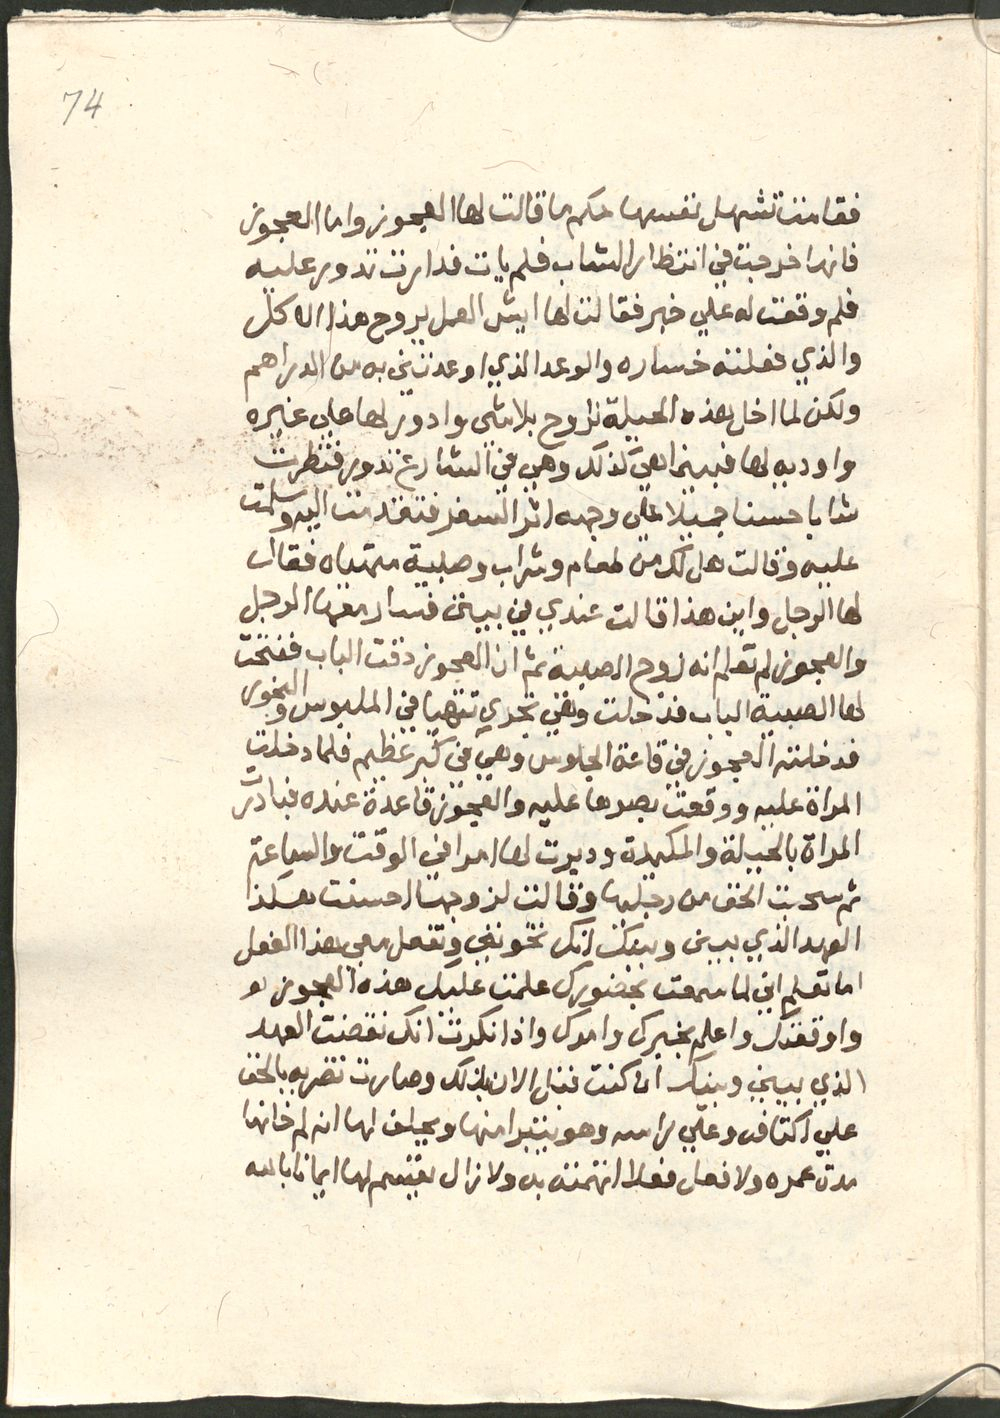 74
فقامت تشهل نفسها حكم ما قالت لها العجوز واما العجوز
فانها خرجت في انتظار الشاب فلم يات فدارت تدور عليه
فلم وقعت له علي خبر فقالت لها ايش العمل يروح هذا الاكل
والذي فعلته خساره والوعد الذي اوعدتني به من الدراهم
ولكن لما اخل هذه الحيلة تروح بلاشي وادور لها علي غيره
واوديه لها فبينما هي كذلك وهي في الشارع تدور فنظرت
شابا حسنا جميلا علي وجهه اثر السفر فتقدمت اليه وسلمت
عليه وقالت هل لك من طعام وشراب وصبية مهياه فقال
لها الرجل واين هذا قالت عندي في بيتي فسار معها الرجل
والعجوز لم تعلم انه زوج الصبية ثم ان العجوز دقت الباب ففتحت
لها الصبية الباب فدخلت وهي تجري تتهيا في الملبوس والبخور
فدخلته العجوز في قاعة الجلوس وهي في كبر عظيم فلما دخلت
المراة عليه ووقعت بصرها عليه والعجوز قاعدة عنده فبادرت
المراة بالحيلة والمكيدة ودبرت لها امرا في الوقت والساعة
ثم سحبت الخف من رجليها وقالت لزوجها احسنت هكذا
العهد الذي بيني وبينك انك تخونني وتفعل معي هذا الفعل
اما تعلم اني لما سمعت بحضورك علمت عليك هذه العجوز
واوقعتك واعلم بخبرك وامرك واذا نكرت انك نقضت العهد
الذي بيني وبينك كنت الان بذلك وصارت تضربه بالخف
علي اكتافه وعلي راسه وهو يتبرا منها ويحلف لها انه لم خانها
مدة عمره ولا فعل فعلا اتهمته به ولا زال يقسم لها ايمانا بالله